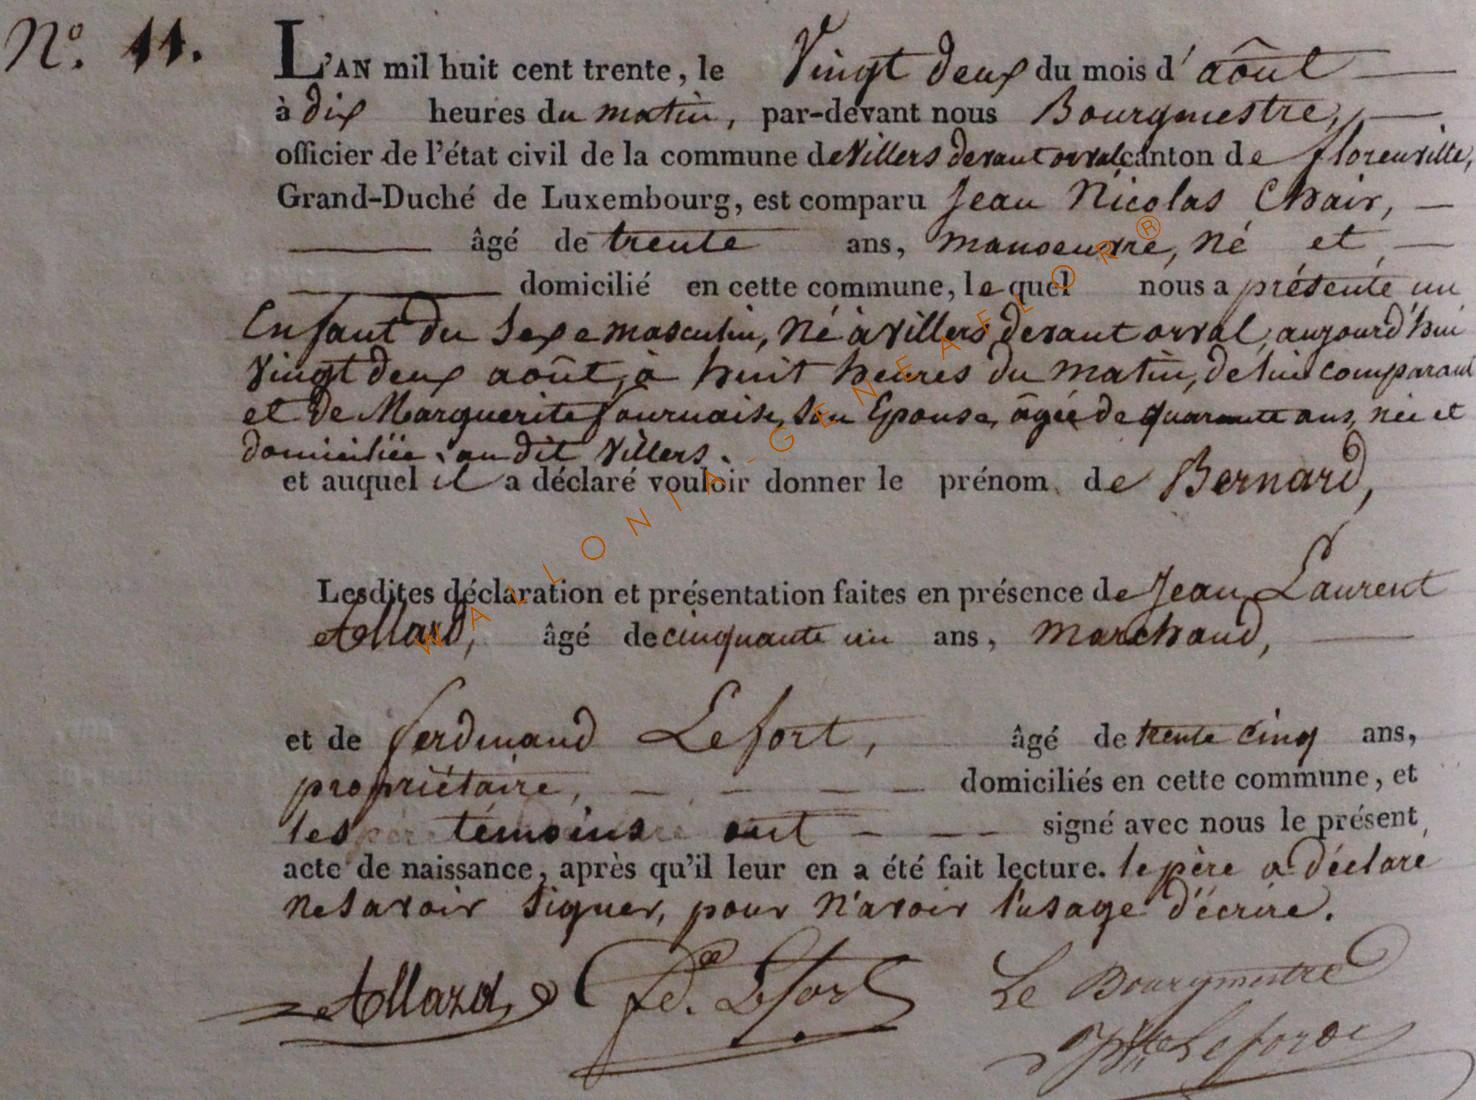 N.º 11.
L'AN mil huit cent trente, le Vingt deux du mois d'août
à dix heures du matin, par-devant nous Bourgmestre,
officier de l'état civil de la commune de Villers devant orval canton de florenville,
Grand-Duché de Luxembourg, est comparu Jean Nicolas Chair,
âgé de trente ans, manoeuvre, né et
domicilié en cette commune, lequel nous a présenté un
Enfant du Sexe masculin, né à villers devant orval, aujourd'hui
vingt deux août, à huit heures du matin, de lui comparant
et de Marguerite fournaise, Son Epouse, âgée de quarante ans, née et
domiciliée au dit Villers.
et auquel il a déclaré vouloir donner le prénom de Bernard,
Lesdites déclaration et présentation faites en présence de Jean Laurent
Allard, âgé de cinquante un ans, Marchand,
et de ferdinand Lefort, âgé de trente cinq ans,
propriétaire, domiciliés en cette commune, et
les témoins ont signé avec nous le présent
acte de naissance, après qu'il leur en a été fait lecture. le père a déclaré
ne Savoir Signer, pour n'avoir l'usage d'écrire.
Allard fd. Lefort Le Bourgmestre
WALLONIA-GENEAFLOR®